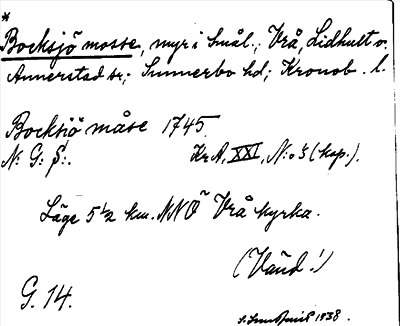 *
Bocksjö mosse, myr i Smål.; Vrå, Lidhult o.
Annerstad sr; Sunnerbo hd; Kronob. l.
Bocksiö måse 1745.
N: G: §:. Kr A, XXI, N:o 5 (kop.).
Läge 5½ km. NNÖ Vrå kyrka.
(Vänd!)
G. 14.
1938.